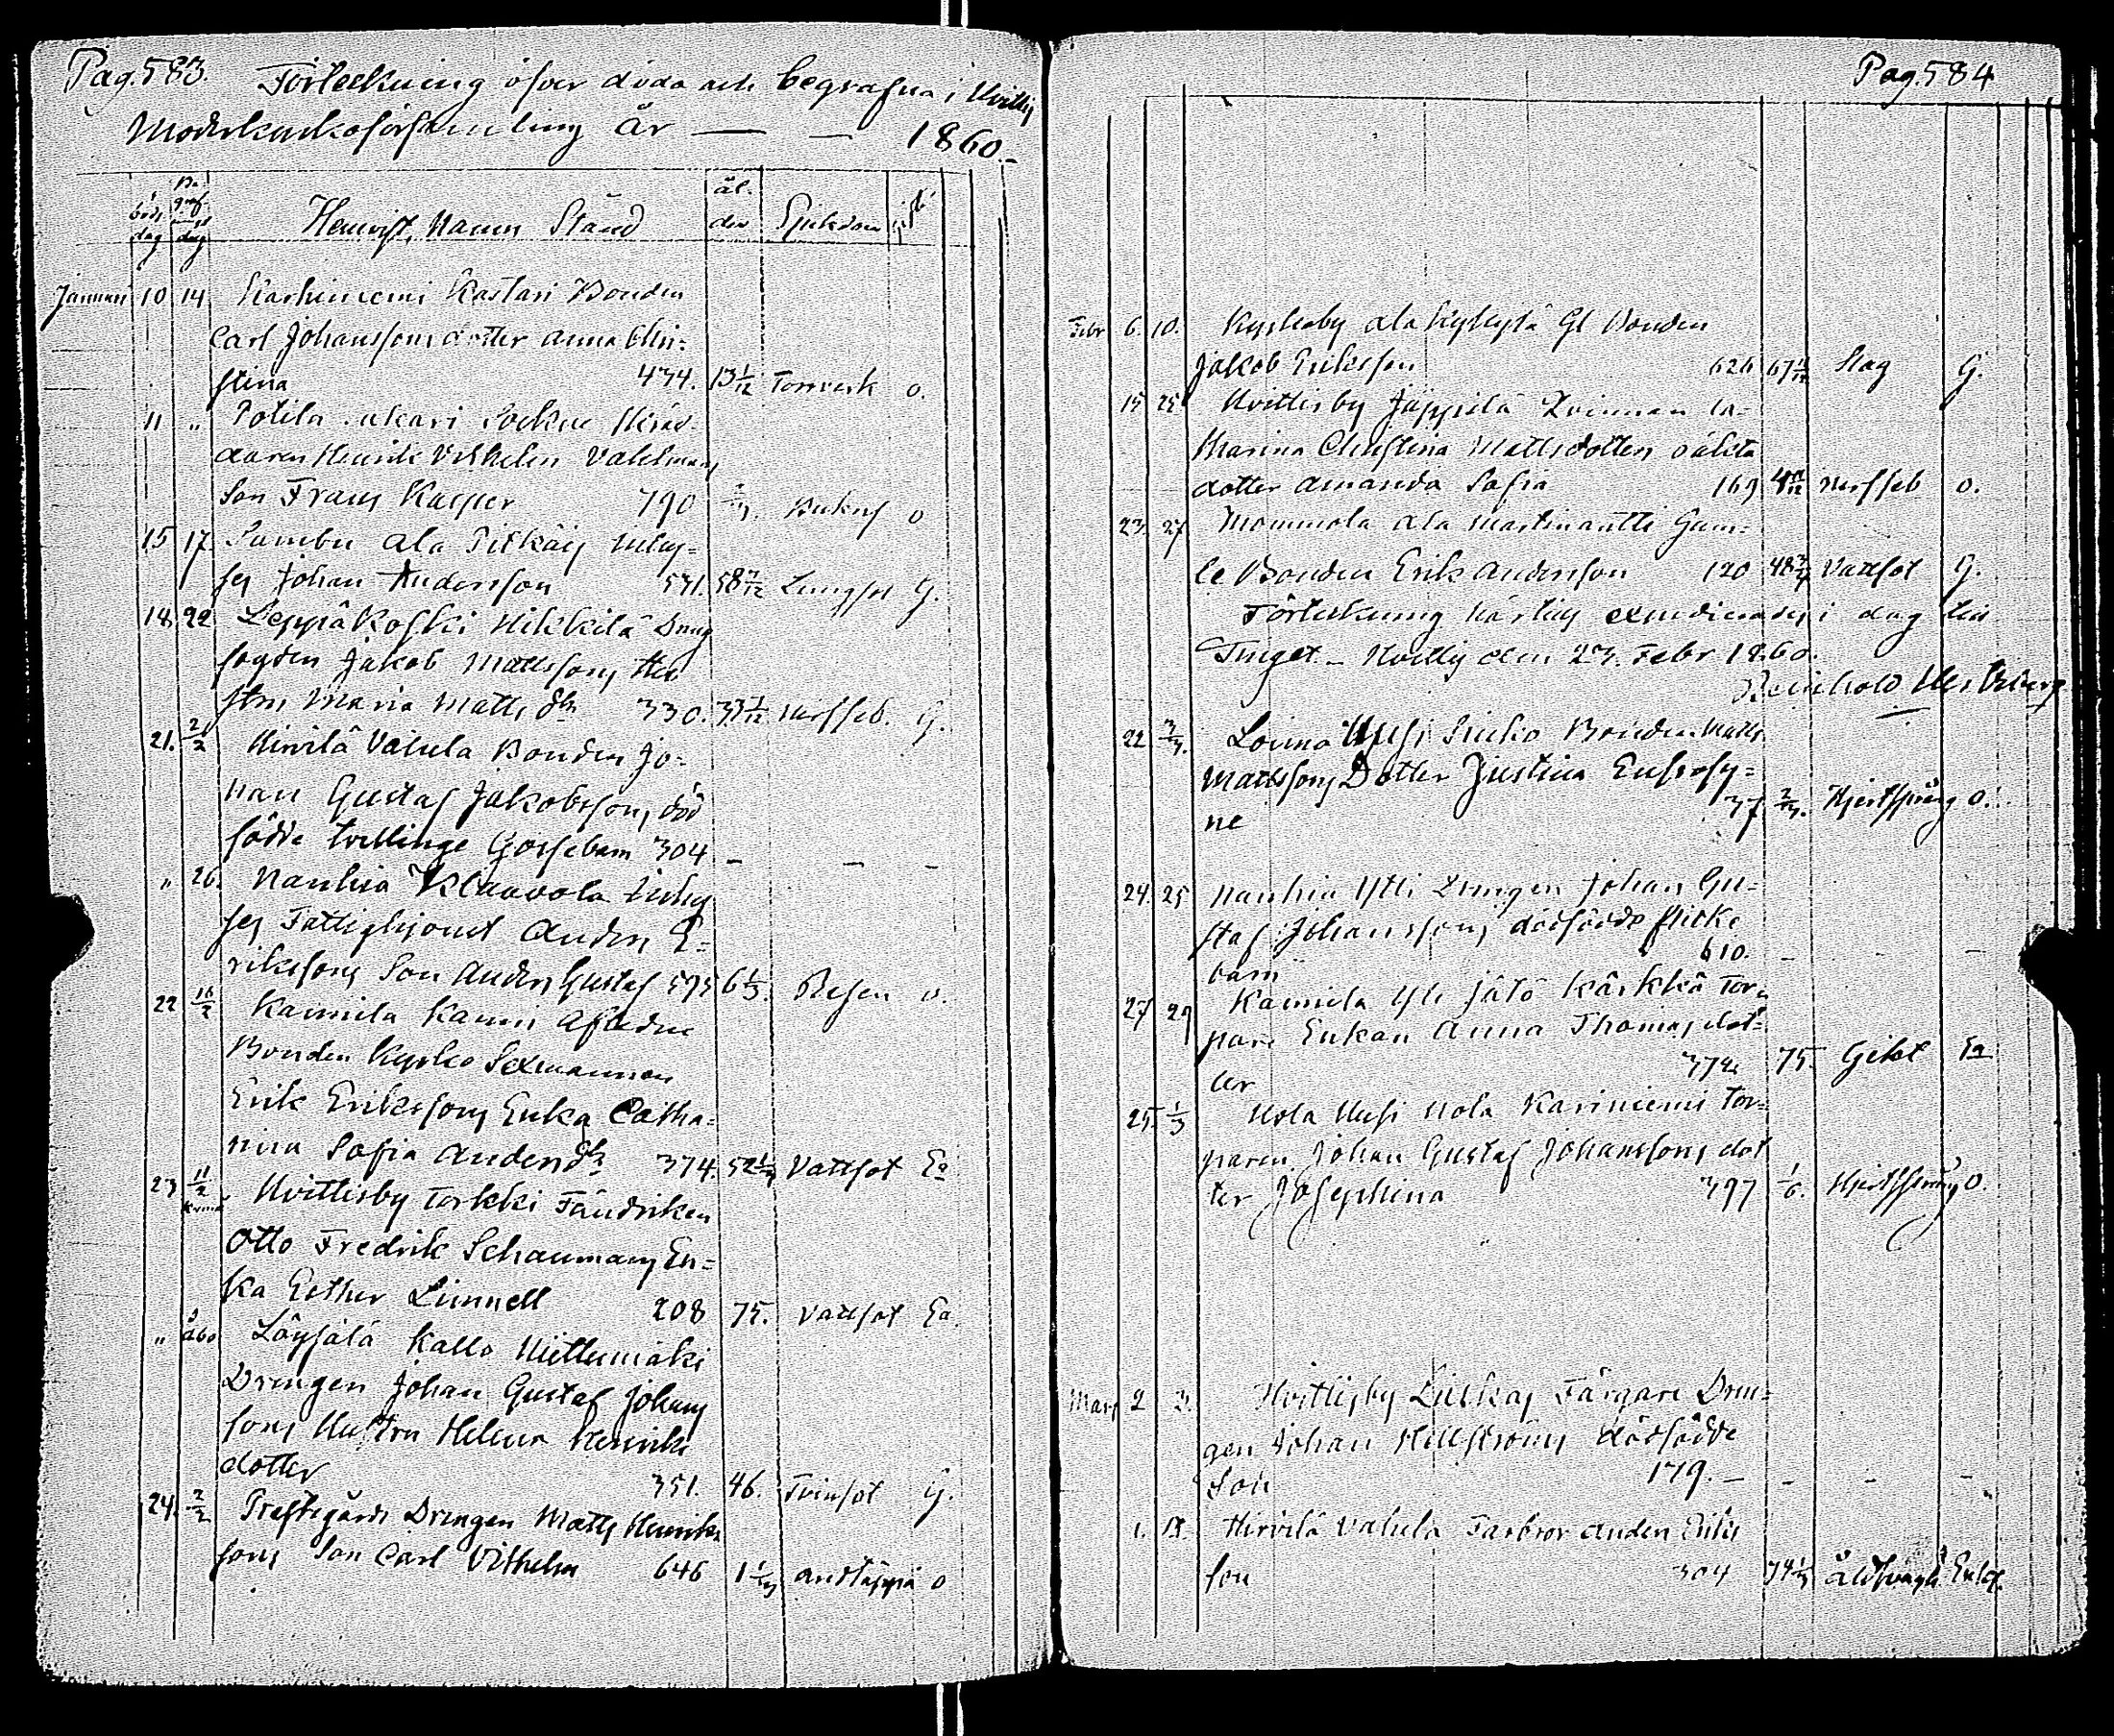 Pag. 583.
Förteckning öfver döda och begrafna i Hvittis
Moderkyrkoförsamling år — — 1860.
döds dag
Be graf nings dag
Hemvist, Namn Stånd
ål der
Sjukdom
Januari 10 14 Karhiniemi Kastari Bonden
Carl Johanssons dotter Anna Chri-
stina 434. 13 1/12 Tornverk o.
11 " Potila
Henrik Vilhelm Vahlmans
Son Frans Kasper 790 o
15 17. Sambu Ala Pitkäis Inhys-
ses Johan Andersson 531. 58 7/12 Lungsot G.
18. 22 Leppäkoski Mikkilä Dräng
fogden Jakob Mattssons Hu
stru Maria Matts dr 330. 33 1/12 Nerffeb. G.
21. 2/2 Hirvilä Vahula Bonden Jo-
han Gustaf Jakobssons död
födde tvillinge Gossebarn 304 – – –
" 26. Nanhia Klaavola Inhys
ses Fattighjonet Anders E-
rikssons Son Anders Gustaf 595 6 1/3. o.
22 Kaimila Kauni Afledne
Bonden Kyrko Sexmannen
Erik Erikssons Enka Catha-
rina Sofia Anders dr 374. 52 1/3 Vattsot Ea
23 11/2 Hvittisby Torkki Fändriken
Otto Fredrik Schaumans En-
ka Esther Limnell 208 75. Vattsot Ea.
" Åbo Löysälä Kallo Niittumäki
Drengen Johan Gustaf Johans
sons Hustru Helena Henriks
dotter 351. 46. Tvinsot G.
24. 2/2 Prestgårds Drengen Matts Henriks
sons Son Carl Vilhelm 646 1 1/3 andtäppa o
Pag. 584
Febr 6. 10. Kyrkoby Ala Kyhyjtä Gl Bonden
Jakob Eriksson 626 67 Slag G.
15 25 Hvittisby Jäppilä Qvinnan
Maria Christina Mattsdotters oäkta
dotter Amanda Sofia 169 Nerffeb o.
23. 27 Mommola Ala Martinantti Gam-
le Bonden Erik Andersson 120 48 Vattsot G.
Förteckning härtills expedierades i dag till
Tinget. – Hvittis den 23. Febr 1860.
Reinhold
22 3/3. Loima Uusi Siuko Bonden Matts
Mattssons Dotter Justina Eufrosy-
ne 37 Hjertsprång o.
24. 25 Nanhia Ylli Drengen Johan Gu-
staf Johanssons dödfödde flicke
barn 610. – – –
27 29 Kaimila Yli Jätö Kärkkä Tor-
pare Enkan Anna Thomasdot-
ter 372 75. Gikt Ea
25. 1/3 Nola Uusi Nola Kariniemi Tor-
paren Johan Gustaf Johanssons dot
ter Josephina 397 1/6. Hjertsprång o.
Mars 2 3. Hvittisby Luukas Färgare Dren-
gen Johan Hellströms dödfödde
Son 179. – – – –
1. 18. Hirvilä Vahula Farbror Anders Eriks
son 304 74 1/3 Ålderdomssvagh. Enkl.